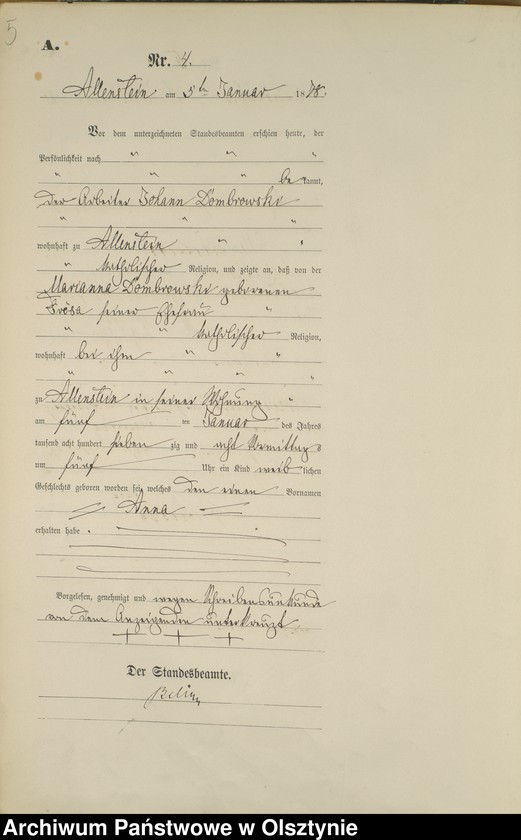 5
A.
Nr. 4.
Allenstein am 5ten Januar 1878.
Vor dem unterzeichneten Standesbeamten erschien heute, der
Persönlichkeit nach
bekannt,
der Arbeiter Johann Dombrowski
wohnhaft zu Allenstein
katholischer Religion, und zeigte an, daß von der
Marianna Dombrowski geborenen
seiner Ehefrau
katholischer Religion,
wohnhaft bei ihm
zu Allenstein in seiner Wohnung
am fünf ten Januar des Jahres
tausend acht hundert sieben zig und acht Vormittags
um fünf Uhr ein Kind weiblichen
Geschlechts geboren worden sei, welches den einen Vornamen
Anna
erhalten habe.
Vorgelesen, genehmigt und wegen Schreibensunkunde
von dem Anzeigenden unterkreuzt
+ + +
Der Standesbeamte.
Archiwum Państwowe w Olsztynie